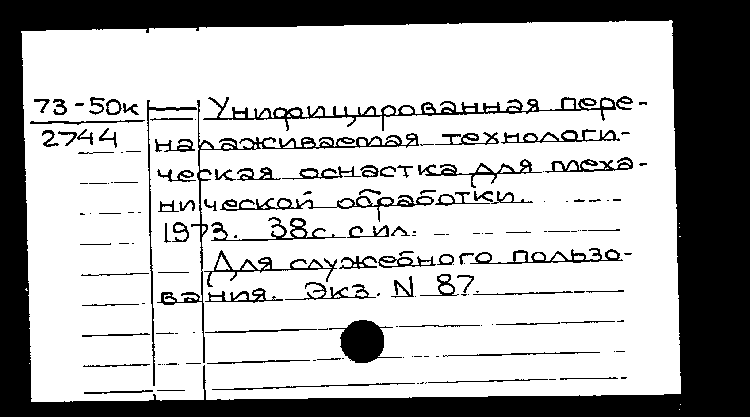 73-50к — Унифицированная пере-
2744 налаживаемая технологи-
ческая оснастка для меха-
нической обработки.
1973. 38с. с ил.
Для служебного пользо-
вания. Экз. N 87.